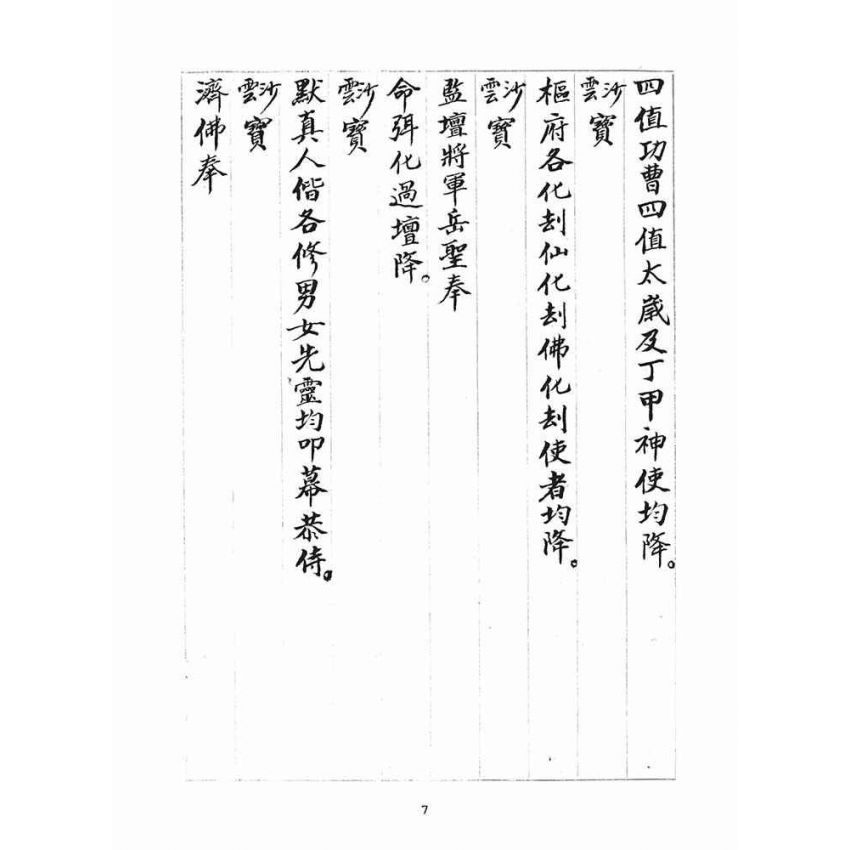 四值功曹四值太歲及丁甲神使均降。
雲沙寶
樞府各化刦仙化刦佛化刦使者均降。
雲沙寶
監壇將軍岳聖奉
命弭化過壇降。
雲沙寶
默真人偕各修男女先靈均叩幕恭侍。
雲沙寶
濟佛奉
7